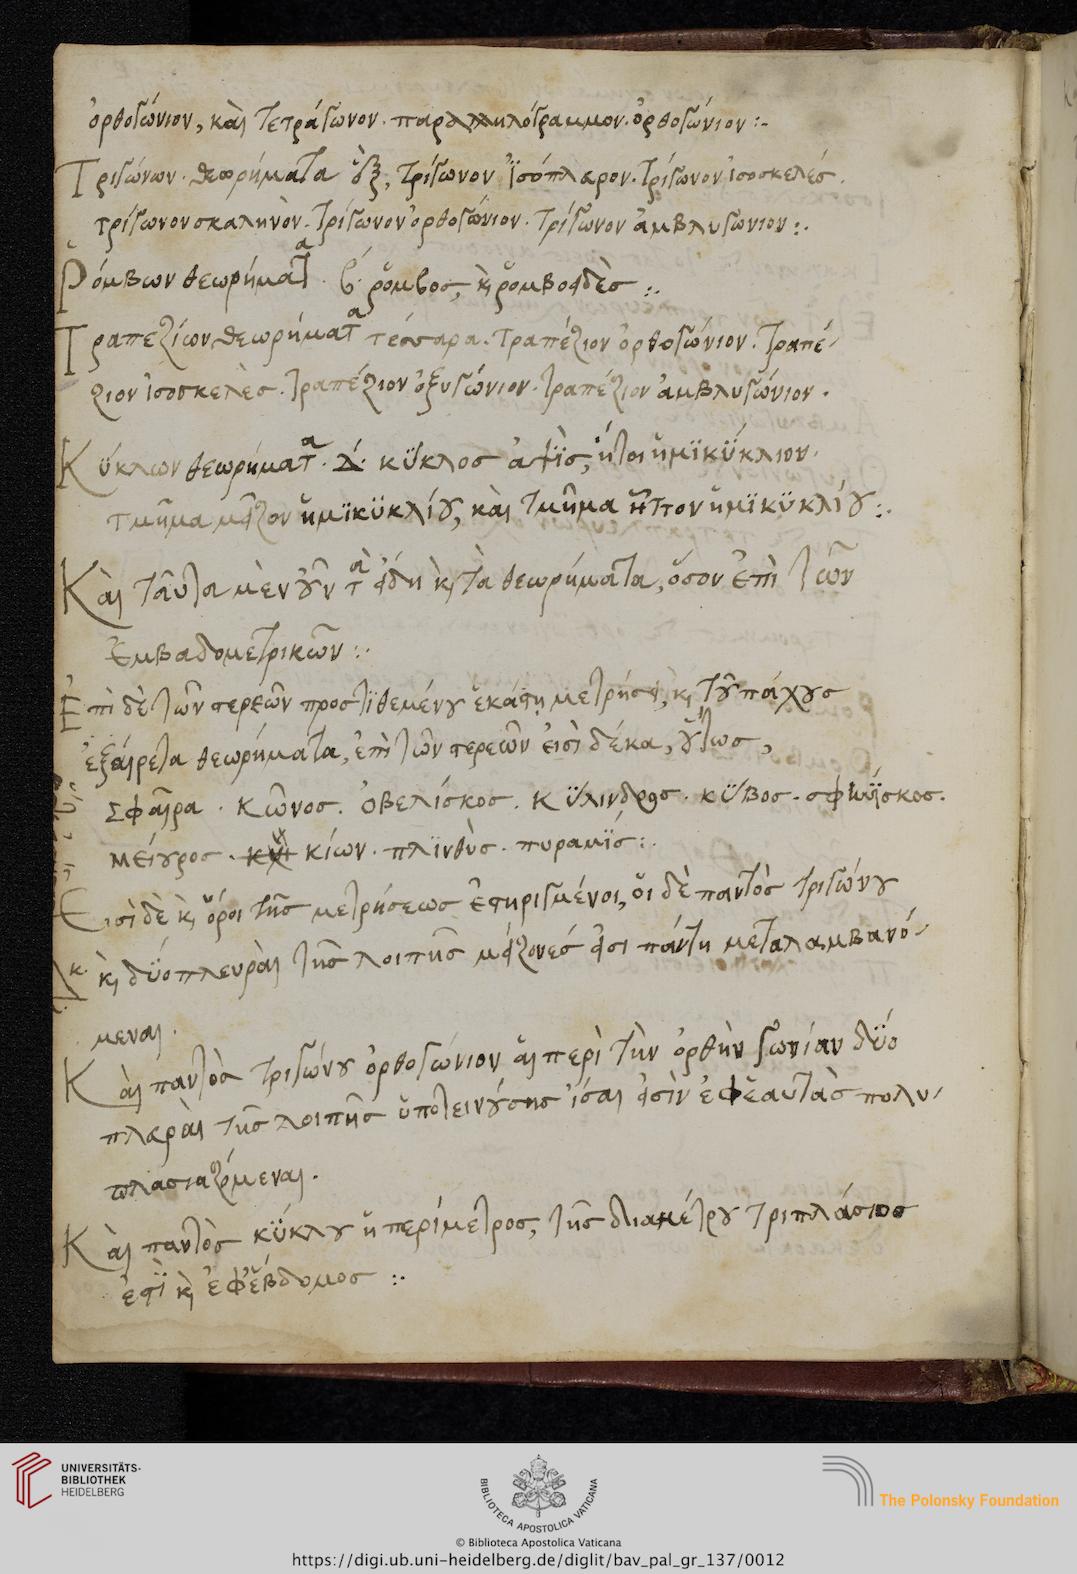 ὀρθογώνιον, καὶ τετράγωνον. παραλληλόγραμμον. ὀρθογώνιον :-
Τριγώνων. θεωρήματα ἓξ, τρίγωνον ἰσόπλευρον. τρίγωνον ἰσοσκελές.
τρίγωνον σκαληνὸν. τρίγωνον ὀρθογώνιον. τρίγωνον ἀμβλυγώνιον :.
Ῥόμβων θεωρήματα. β. ῥόμβος, καὶ ῥομβοειδὲς :.
Τραπεζίων θεωρήματα τέσσαρα. τραπέζιον ὀρθογώνιον. τραπέ-
ζιον ἰσοσκελὲς. τραπέζιον ὀξυγώνιον. τραπέζιον ἀμβλυγώνιον.
Κύκλων θεωρήματα. Δ. κύκλος ἁψῒς, ἤτοι ἡμϊκύκλιον.
τμῆμα μεῖζον ἡμϊκϋκλίου, καὶ τμῆμα ἧττον ἡμϊκϋκλίου :.
Καὶ ταῦτα μὲν οὖν τὰ εἴδη καὶ τὰ θεωρήματα, ὅσον ἐπὶ τῶν
ἐμβαδομετρικῶν :.
Ἐπὶ δὲ τῶν στερεῶν προστϊθεμένου ἑκάστη μετρήσει, καὶ τοῦ πάχους
ἐξαίρετα θεωρήματα, ἐπὶ τῶν στερεῶν εἰσὶ δέκα, οὕτως,
Σφαῖρα. κῶνος. ὀβελίσκος. κύλινδρος. κύβος. σφηνίσκος.
μείουρος. κίων. πλϊνθὺς. πυραμΐς :.
Εἰσὶ δὲ καὶ ὅροι τῆς μετρήσεως ἐστηριγμένοι, οἵδε παντὸς τριγώνου
κ.
καὶ δύο πλευραὶ τῆς λοιπῆς μείζονές εἰσι πάντη μεταλαμβανό-
μεναι.
Καὶ παντὸς τριγώνου ὀρθογώνιον αἱ περὶ τὴν ὀρθὴν γωνίαν δύο
πλευραὶ τῆς λοιπῆς ὑποτεινούσης ἴσαι εἰσὶν ἐφ' ἑαυτὰς πολυ-
πλασιαζόμεναι.
Καὶ παντὸς κύκλου ἡ περίμετρος, τῆς διαμέτρου τριπλάσιος
ἐστῒ καὶ ἐφέβδομος :.
UNIVERSITÄTS-
BIBLIOTHEK
HEIDELBERG
BIBLIOTECA APOSTOLICA VATICANA
The Polonsky Foundation
© Biblioteca Apostolica Vaticana
https://digi.ub.uni-heidelberg.de/diglit/bav_pal_gr_137/0012